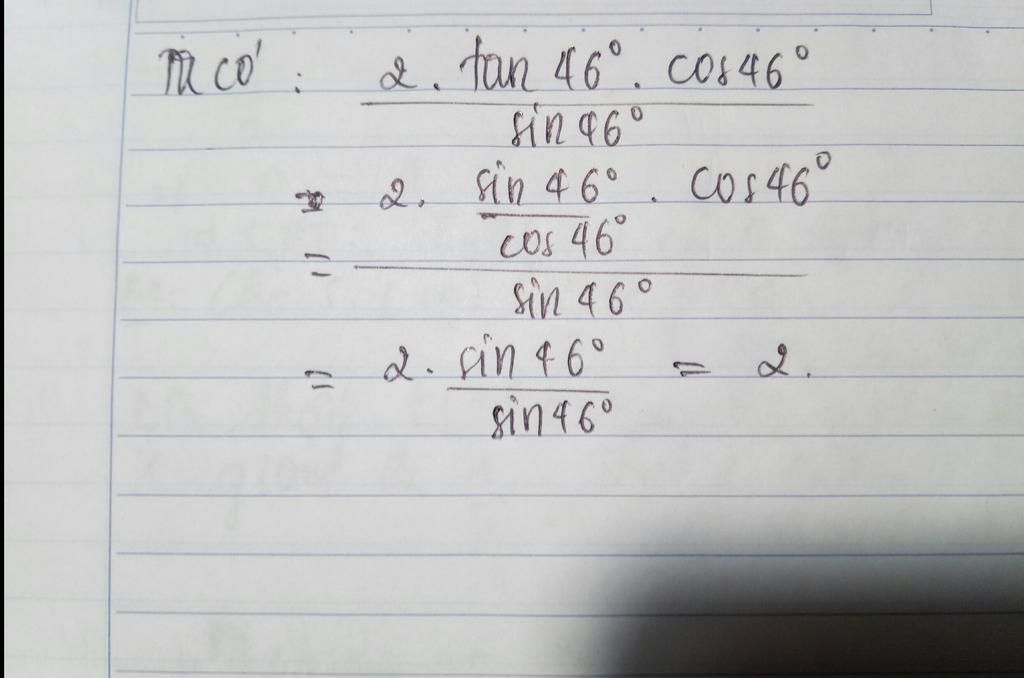 Ta có: 2 . tan 46° . cos46°
sin 46°
= 2. sin 46° . cos46°
cos 46°
=
sin 46°
= 2. sin 46° = 2.
sin46°